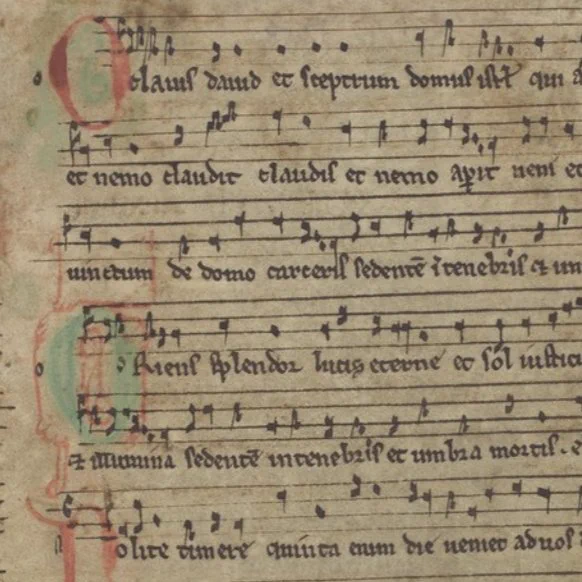 O clauis dauid et sceptrum domus isrł qui a
et nemo claudit claudis et nemo apit ueni et
uinctum de domo carceris sedentē ī tenebris ⁊ um
O Riens splendor lucis eterne et sol iustici
⁊ illumina sedentē in tenebris et umbra mortis. e
Nolite timere quinta enim die ueniet ad uos